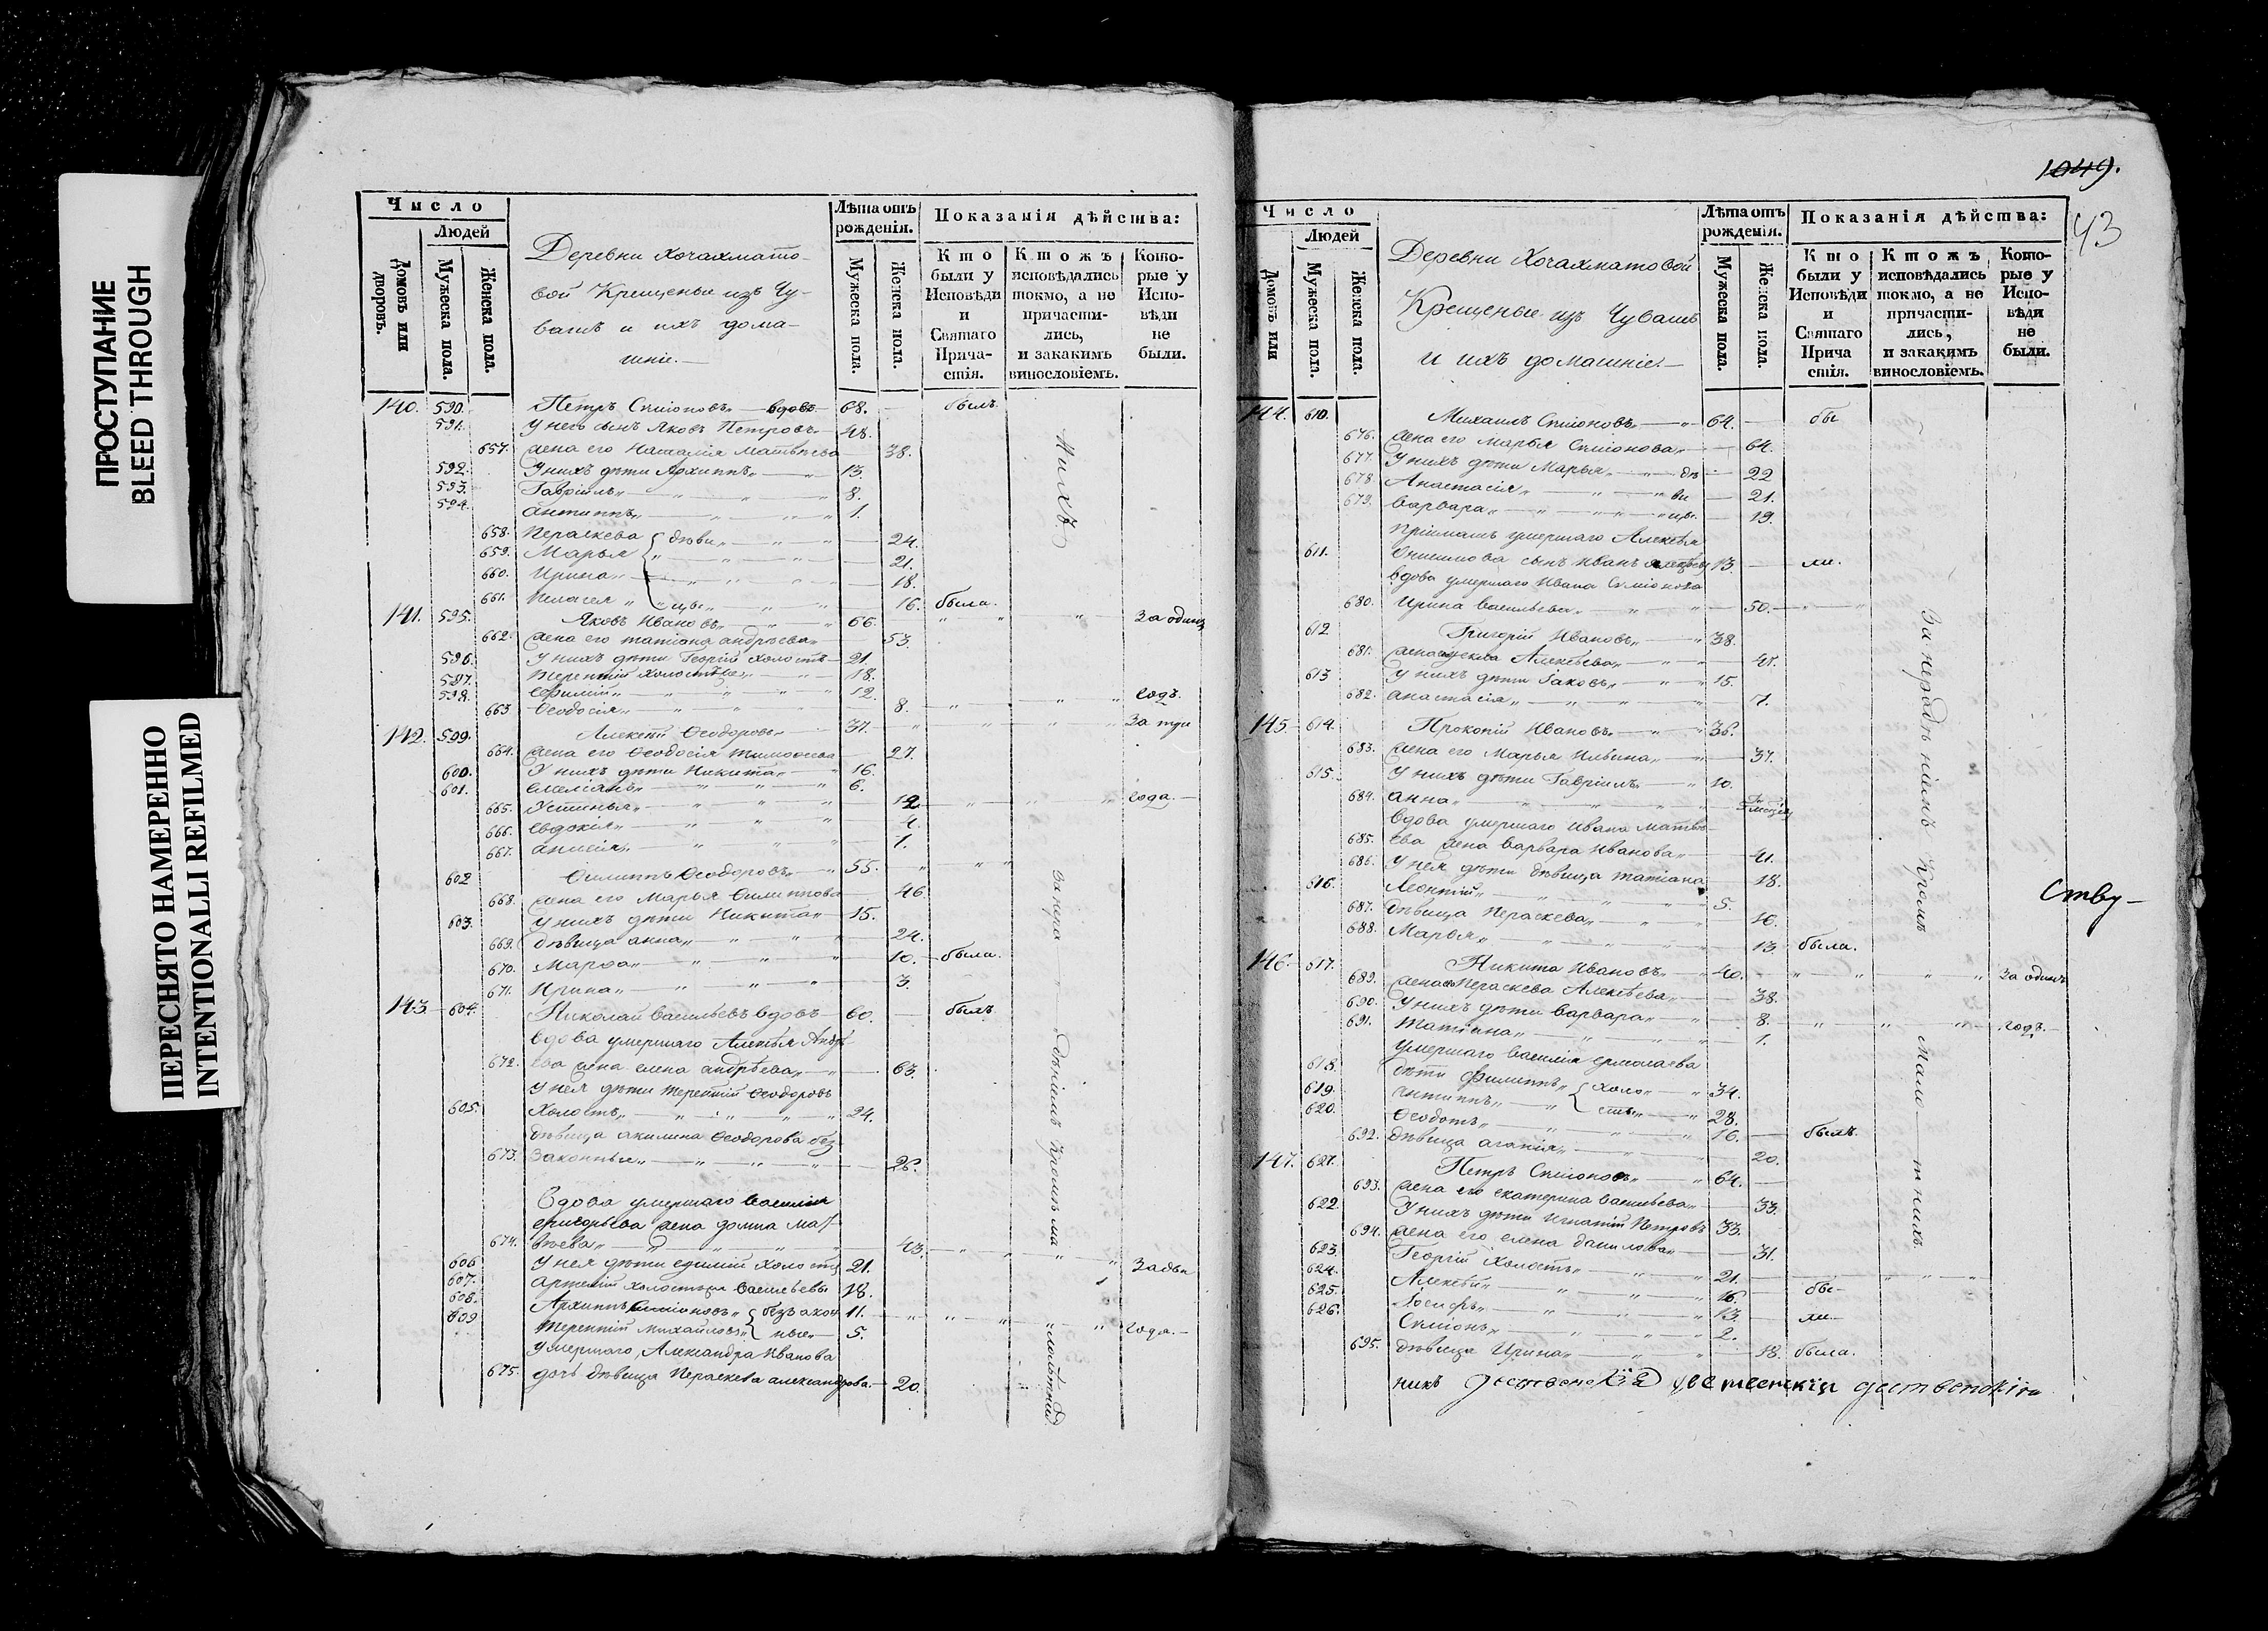 ПРОСТУПАНИЕ
BLEED THROUGH
ПЕРЕСНЯТО НАМЕРЕННО
INTENTIONALLI REFILMED
Число
Людей
Домовъ или дворовъ.
Мужеска пола.
Женска пола.
Деревни Кочахмато-
вой Крещеные изъ Чу-
вашъ и ихъ дома-
шніе.—
Лѣта отъ рожденія.
Мужеска пола.
Женска пола.
Показанія дѣйства:
Кто были у Исповѣди и Святаго Прича-стія.
Ктожъ исповѣдались токмо, а не причасти-лись, и закакимъ винословіемъ.
Кото-рые у Испо-вѣди не были.
140. 590. Петръ Симіоновъ вдовъ 68. былъ
591. У него сынъ Яковъ Петровъ 48.
657. жена его Наталія Матвѣева 38.
592. У нихъ дѣти Архиппъ 13.
593. Гавріилъ 8.
594. Антиппъ 1.
658. Пераскева дѣви 24.
659. Марья 21.
660. Ирина 18.
661. Пелагея цы 16. была.
141. 595. Яковъ Ивановъ 66. За одинъ
662. жена его татіана андреева 53.
596. У нихъ дѣти Георгій холостъ 21.
597. Терентій холостъ 18.
598. Ефимій 12. годъ
663. Ѳеодосія 8.
142. 599. Алексѣй Ѳеодоровъ 37. За три
664. жена его Ѳеодосія Тимоѳеева 27.
600. У нихъ дѣти Никита 16.
601. Емеліанъ 6.
665. Устинья 12. года.
666. Евдокія 4.
667. Анисія 1.
602 Филиппъ Ѳеодоровъ 55.
668. жена его Марья Филиппова 46.
603. У нихъ дѣти Никита 15.
669. дѣвица анна 24.
670. Марѳа 10. была.
671. Ирина 3.
143. 604. Николай Васильевъ вдовъ 60. былъ
вдова умершаго Алексѣя Андре
672. ева жена елена андрѣева 63.
У нея дѣти Терентій Ѳеодоровъ
605. Холостъ 24.
дѣвица акилина Ѳеодорова без
673. законные 26.
Вдова умершаго Василія
григорьева жена домна мат
674. вѣева 43.
606 У нея дѣти ефимій холостъ 21. За два
607. артемій холостцы Васильевы 18.
608. Архиппъ Симіоновъ безъакон 11.
609 Терентій Михайловъ ные 5. года.
Умершаго Александра Иванова
675. дочь дѣвица Пераскева александрова. 20.
за нера дѣніемъ Кромѣ ма
1049.
43
Число
Людей
Домовъ или
Мужеска пола.
Женска пола.
Деревни Кочахматовой
Крещеные изъ Чувашъ
и ихъ домашніе.—
Лѣта отъ рожденія.
Мужеска пола.
Женска пола.
Показанія дѣйства:
Кто были у Исповѣди и Святаго Прича стія.
Ктожъ исповѣдались токмо, а не причасти-лись, и закакимъ винословіемъ.
Кото-рые у Испо-вѣди не были.
144. 610. Михаилъ Симіоновъ 64. бы
676. жена его Марья Симіонова 64.
677. У нихъ дѣти Марья дѣ 22
678. Анастасія ви 21.
679. Варвара цы 19.
пріимашъ умершаго Алексѣя
611. Онисимова сынъ Иванъ 13. ли.
вдова умершаго Ивана Симіонова
680. Ирина Васильева 50.
612 Григорій Ивановъ 38.
681. Алексѣева 41.
613 У нихъ дѣти Іаковъ 15.
682. анастасія 7.
145. 614. Прокопій Ивановъ 36.
683. жена его Марья Ильина 37.
615. У нихъ дѣти Гавріилъ 10.
684. анна
вдова умершаго Ивана матвѣ-
685. ева жена варвара Иванова 41.
686. У нея дѣти дѣвица татіана 18.
616. Леонтій 5.
687. дѣвица Пераскева 10.
688. Марья 13 была.
Ству-
146. 617. Никита Ивановъ 40. за одинъ
689. жена его Пераскева Алексѣева 38.
690. У нихъ дѣти Варвара 8. годъ.
691. Татіана 1.
умершаго Василія ермолаева
618. дѣти Филиппъ холо 34.
619. Антиппъ сты 28.
620. Ѳеодотъ 16. былъ.
692. дѣвица агапія 20.
147. 621. Петръ Симіоновъ 64.
693. жена его екатерина васильева 33.
622. У нихъ дѣти Игнатій Петровъ 33.
694. жена его елена данилова 31.
623. Георгій Холостъ 21.
624. Алексѣй 16. бы-
625. Іосифъ 13. ли.
626. Симіонъ 2.
695. дѣвица Ирина 18. была.
За нерадѣніимъ Кромѣ мало тнихъ.
никъ